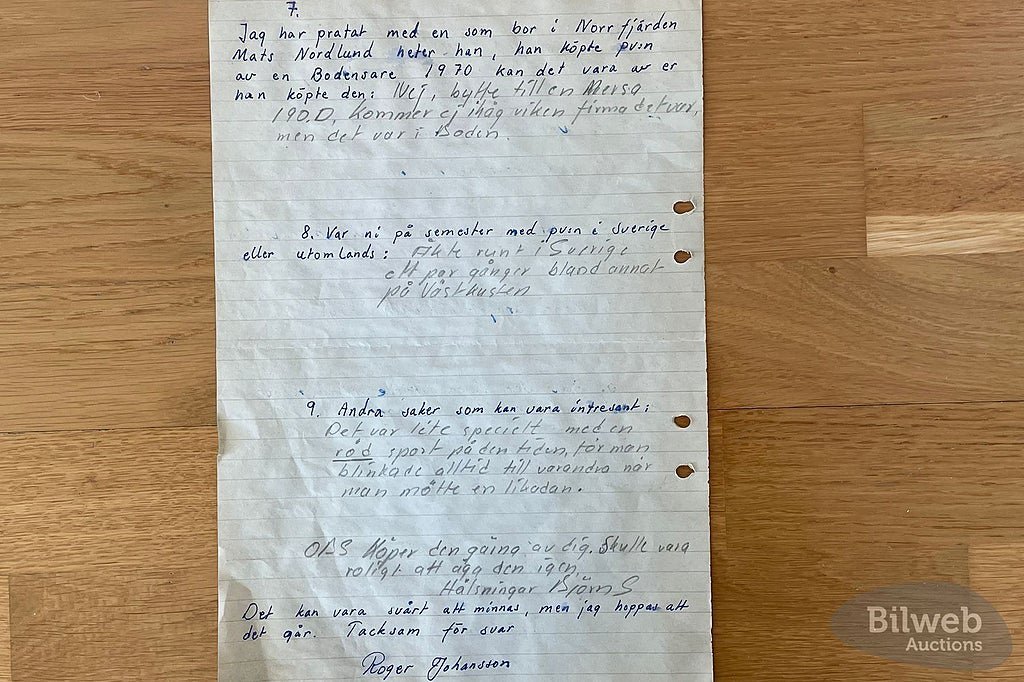 7.
Jag har pratat med en som bor i Norrfjärden
Mats Nordlund heter han, han köpte pv:n
av en Bodensare 1970 kan det vara av er
han köpte den: Nej, bytte till en Mersa
190.D, Kommer ej ihåg viken firma det var,
men det var i Boden.
8. Var ni på semester med pv:n i Sverige
eller utomlands: Åkte runt i Sverige
ett par gånger bland annat
på Västkusten
9. Andra saker som kan vara intresant:
Det var lite speciellt med en
röd sport på den tiden, för man
blinkade alltid till varandra när
man mötte en likadan.
OBS Köper den gärna av dig. Skulle vara
roligt att äga den igen.
Hälsningar Björn S
Det kan vara svårt att minnas, men jag hoppas att
det går. Tacksam för svar
Roger Johansson
Bilweb
Auctions